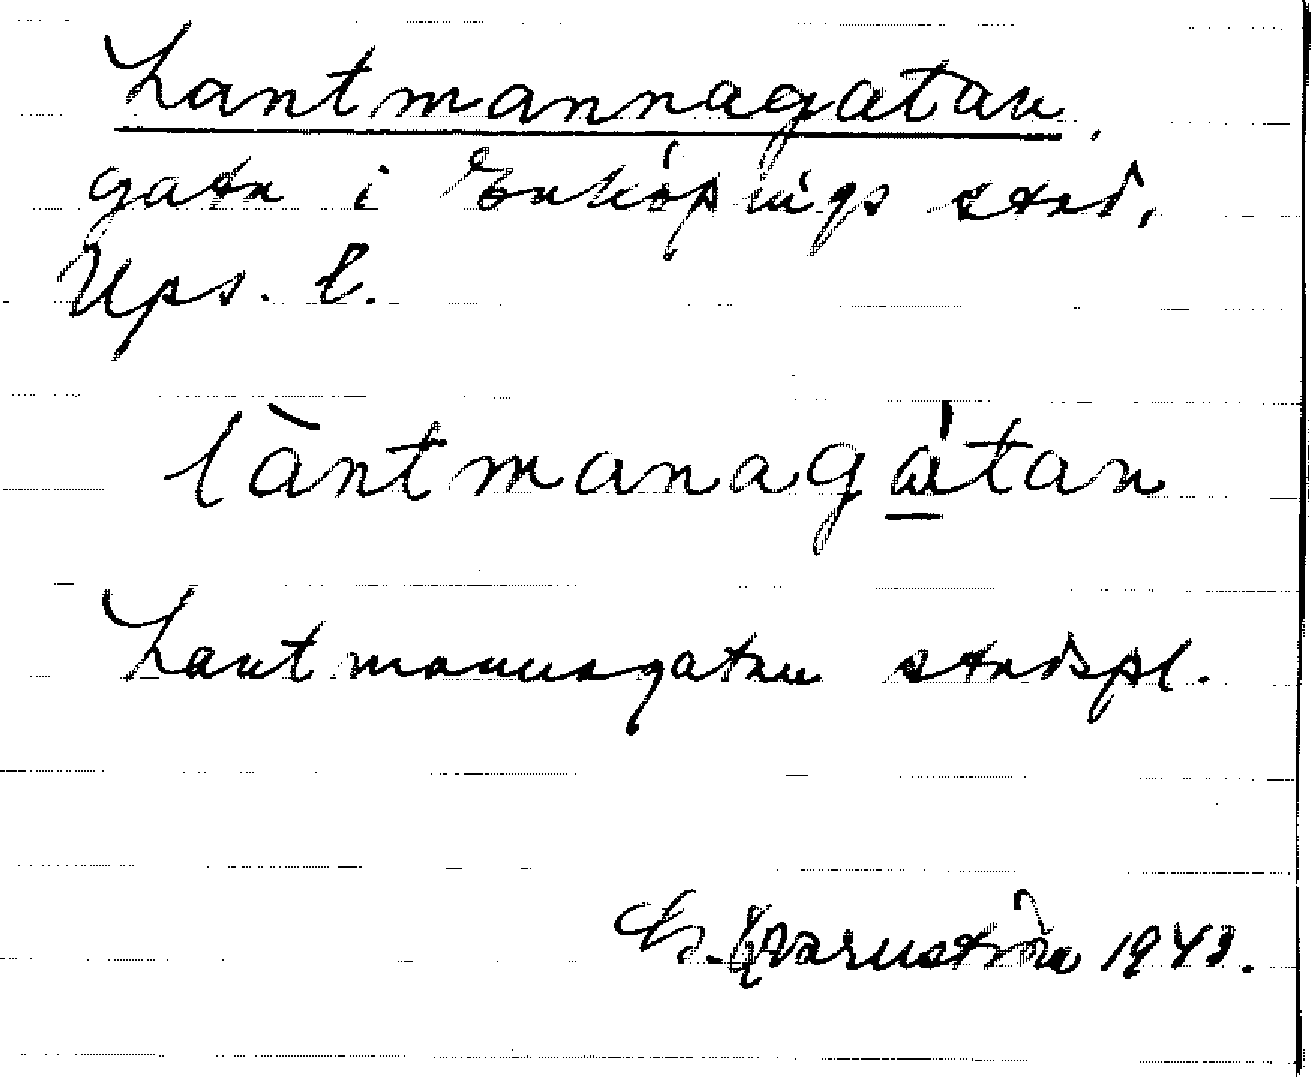 Lantmannagatan,
gata i Enköpings stad,
Ups. l.
làntmanagátan
Lantmannagatan stadspl.
G. Qvarnström 1943.